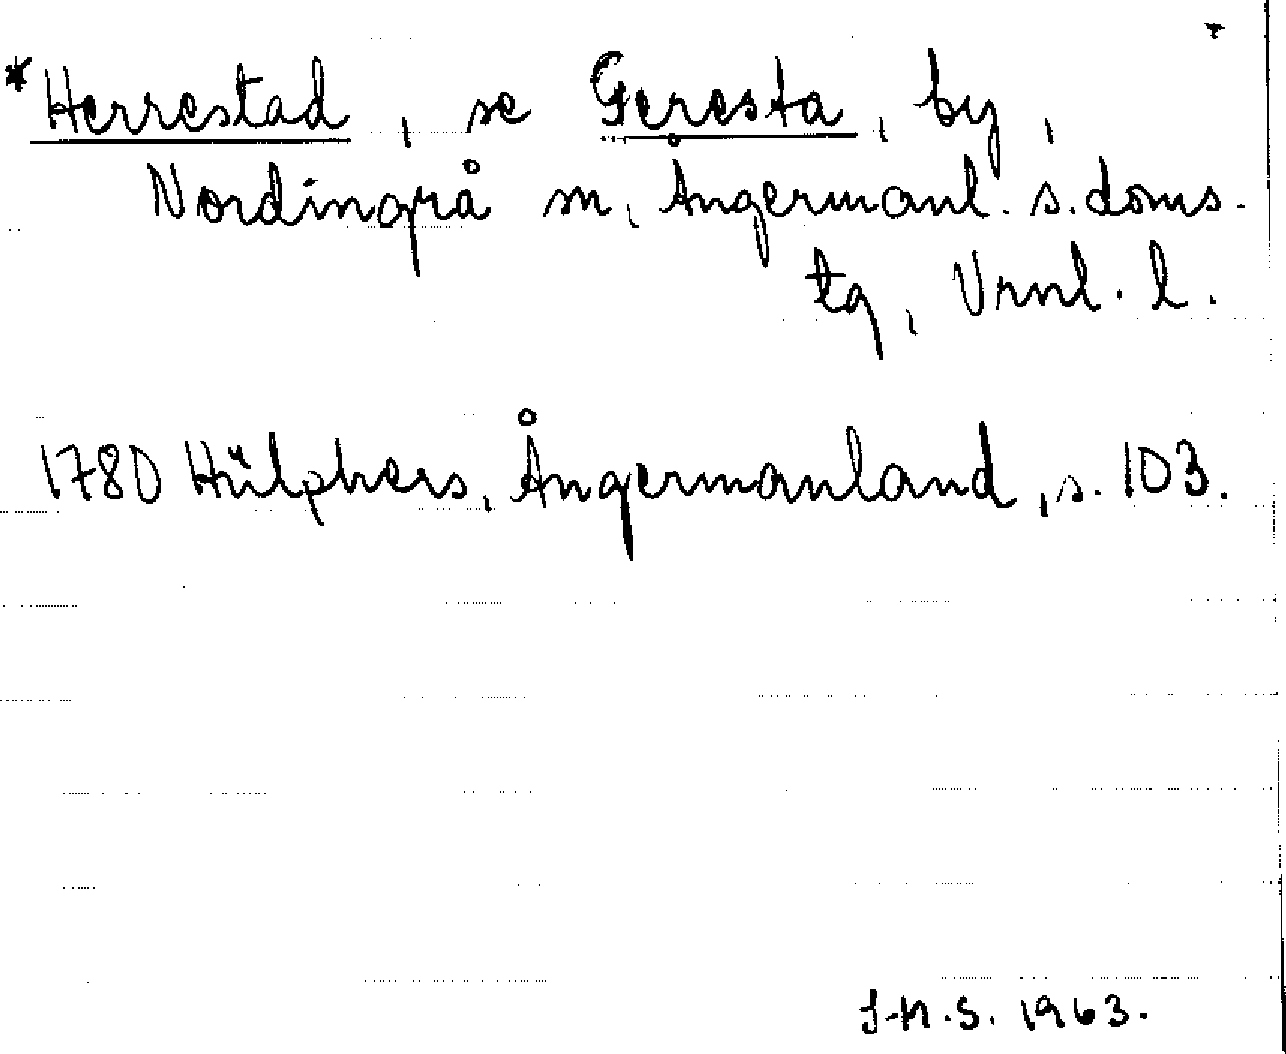 *Herrestad, se Geresta, by,
Nordingrå sn, Ångermanl. s. doms-
tg, Vrnl. l.
1780 Hülphers, Ångermanland, s. 103.
J.N.S. 1963.